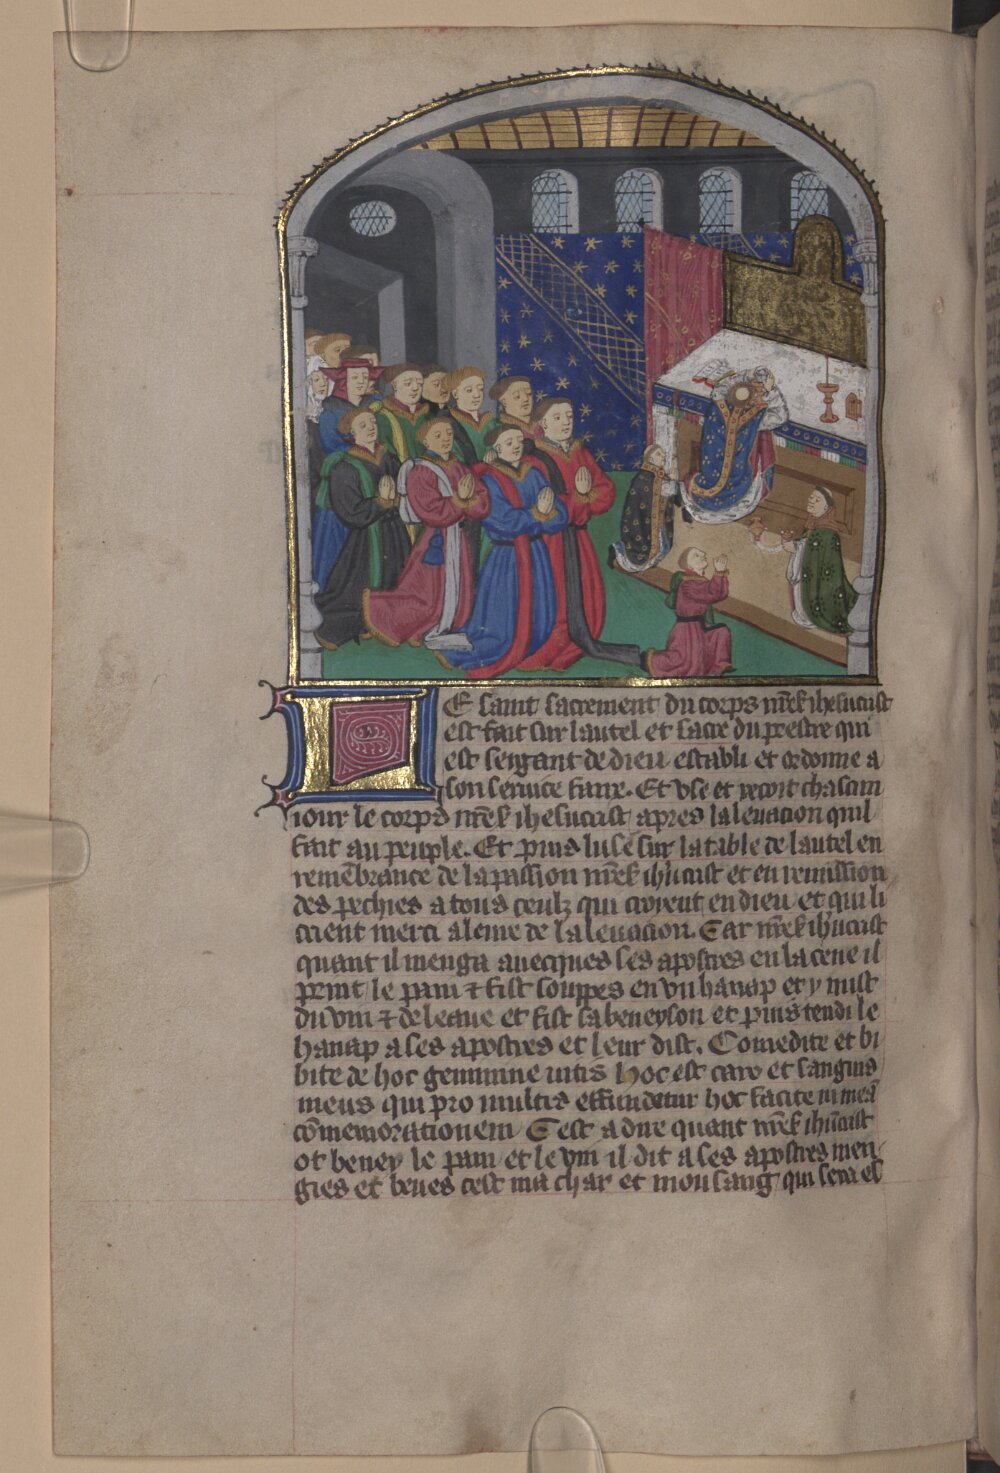 LE saint sacrement du corps nr̃e s̃ ihesucrist
est fait sur lautel et sacre du prestre qui
est sergant de dieu establi et ordonne a
son seruice faire. Et vse et recoit chascun
iour le corps nr̃e s̃ ihesucrist apres laleuacion quil
fait au peuple. Et puis luse sur la table de lautel en
remẽbrance de la passion nr̃e s̃ ih̃ucrist et en remission
des pechies a tous ceulz qui croyent en dieu et qui li
crient merci a leure de laleuacion. Car nr̃e s̃ ih̃ucrist
quant il menga auecques ses apostres en la cene il
print le pain ⁊ fist souppes en vn hanap et y mist
du vin ⁊ de leaue et fist sa beneyson et puis tendi le
hanap a ses apostres et leur dist. Comedite et bi
bite de hoc genimine uitis hoc est caro et sanguis
meus qui pro multis effundetur hoc facite in meã
cõmemorationem Cest a dire quant nr̃e s̃ ih̃ucrist
ot beney le pain et le vin il dit a ses apostres men
gies et beues cest ma char et mon sang qui sera es